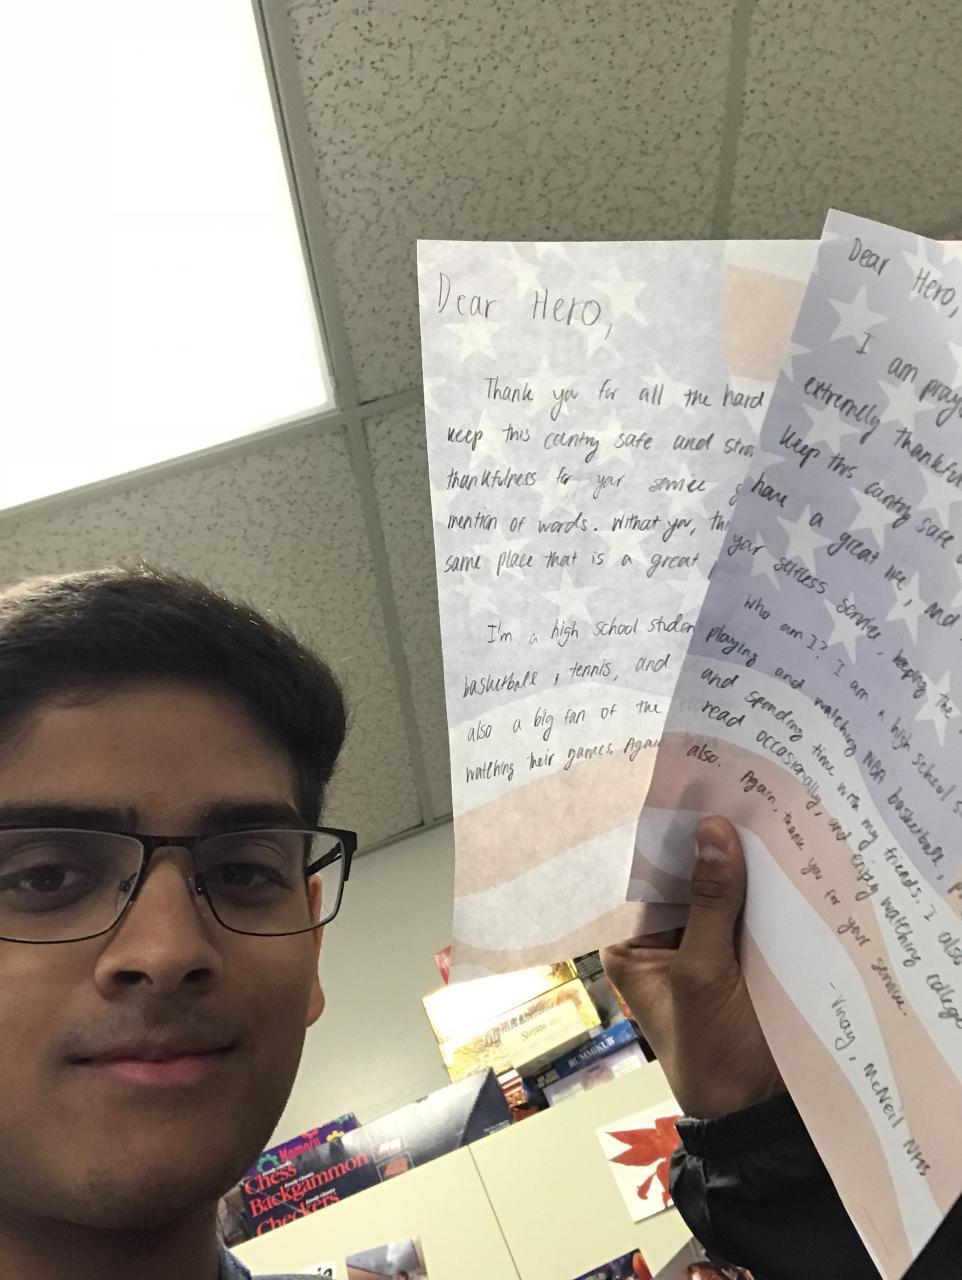 Dear Hero,
Thank you for all the hard
keep this country safe and
thankfulness for your service
mention of words. Without you,
same place that is a great
I'm a high school studen
basketball, tennis, and
also a big fan of the
watching their games. Again
Dear Hero,
I am
extremely thankful
keep this country safe
have a great life, and
your selfless service, keeping the
who am I? I am a high school
playing and watching NBA basketball,
and spending time with my friends. I also
read occasionally, and enjoy watching college
also. Again, thank you for your service.
- Vinay, McNeil NHS
RUMMIKUB
Memory
Chess
Backgammon
Checkers